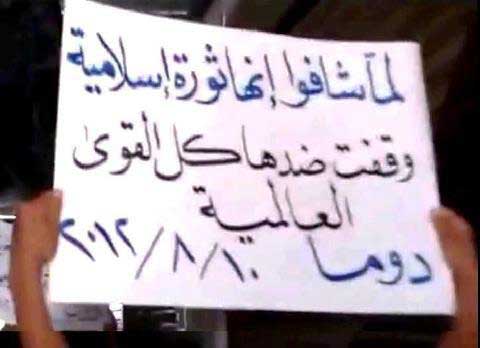 لما شافوا إنها ثورة إسلامية
وقفت ضدها كل القوى
العالمية
دوما ٢٠١٢/٨/١٠